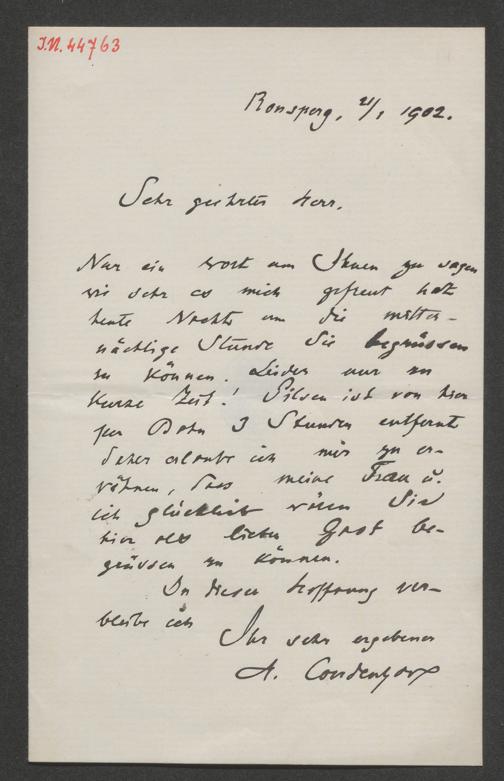 I.N. 44763
Ronsperg, 21/1 1902.
Sehr geehrter Herr.
Nur ein Wort um Ihnen zu sagen
wie sehr es mich gefreut hat
heute Nachts um die mitter-
nächtige Stunde Sie begrüssen
zu können. Leider nur zu
kurze Zeit! Pilsen ist von hier
per Bahn 3 Stunden entfernt
daher erlaube ich mir zu er-
wähnen, dass meine Frau u.
ich glücklich wären Sie
hier als lieben Gast be-
grüssen zu können.
In dieser Hoffnung ver-
bleibe ich
Ihr sehr ergebener
H. Coudenhove